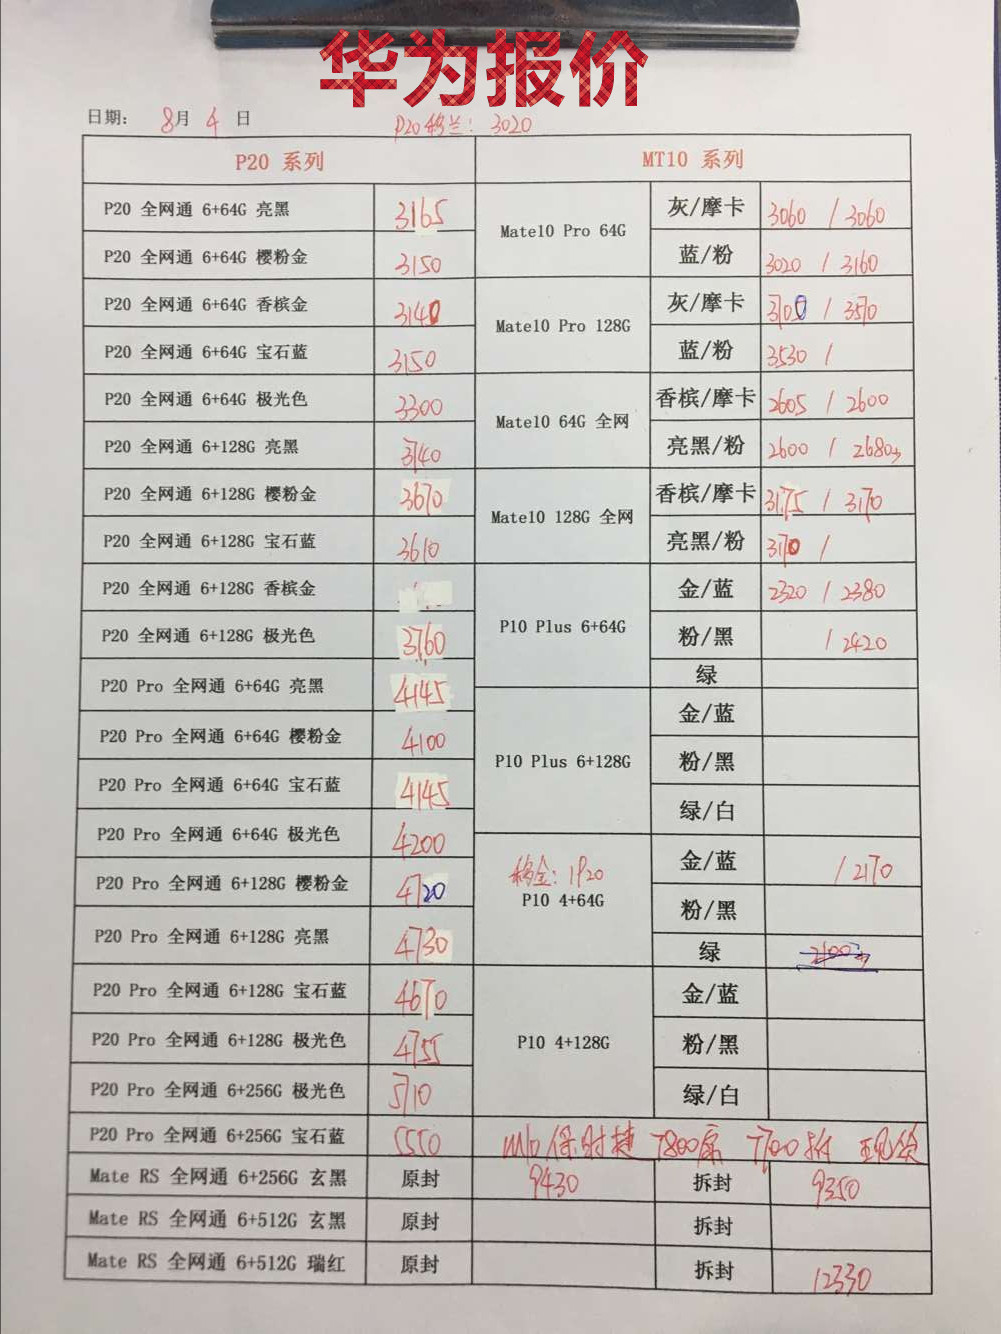 华为报价
日期: 8月 4 日
P20移兰: 3020
P20 系列 MT10 系列
P20 全网通 6+64G 亮黑 3165 Mate10 Pro 64G 灰/摩卡 3060 / 3060
P20 全网通 6+64G 樱粉金 3150 蓝/粉 3020 / 3160
P20 全网通 6+64G 香槟金 3140 Mate10 Pro 128G 灰/摩卡 3700 / 3570
P20 全网通 6+64G 宝石蓝 3150 蓝/粉 3530 /
P20 全网通 6+64G 极光色 3300 Mate10 64G 全网 香槟/摩卡 2605 / 2600
P20 全网通 6+128G 亮黑 3740 亮黑/粉 2600 / 2680
P20 全网通 6+128G 樱粉金 3670 Mate10 128G 全网 香槟/摩卡 3175 / 3170
P20 全网通 6+128G 宝石蓝 3610 亮黑/粉 3170 /
P20 全网通 6+128G 香槟金 P10 Plus 6+64G 金/蓝 2320 / 2380
P20 全网通 6+128G 极光色 3760 粉/黑 / 2420
绿
P20 Pro 全网通 6+64G 亮黑 4145 P10 Plus 6+128G 金/蓝
P20 Pro 全网通 6+64G 樱粉金 4100 粉/黑
P20 Pro 全网通 6+64G 宝石蓝 4145 绿/白
P20 Pro 全网通 6+64G 极光色 4200 移金: 1920 P10 4+64G 金/蓝 / 2170
P20 Pro 全网通 6+128G 樱粉金 4720 粉/黑
P20 Pro 全网通 6+128G 亮黑 4730 绿
P20 Pro 全网通 6+128G 宝石蓝 4670 P10 4+128G 金/蓝
P20 Pro 全网通 6+128G 极光色 4755 粉/黑
P20 Pro 全网通 6+256G 极光色 5710 绿/白
P20 Pro 全网通 6+256G 宝石蓝 5550 M10保时捷 7800原 7700拆 现货
Mate RS 全网通 6+256G 玄黑 原封 9430 拆封 9350
Mate RS 全网通 6+512G 玄黑 原封 拆封
Mate RS 全网通 6+512G 瑞红 原封 拆封 12330